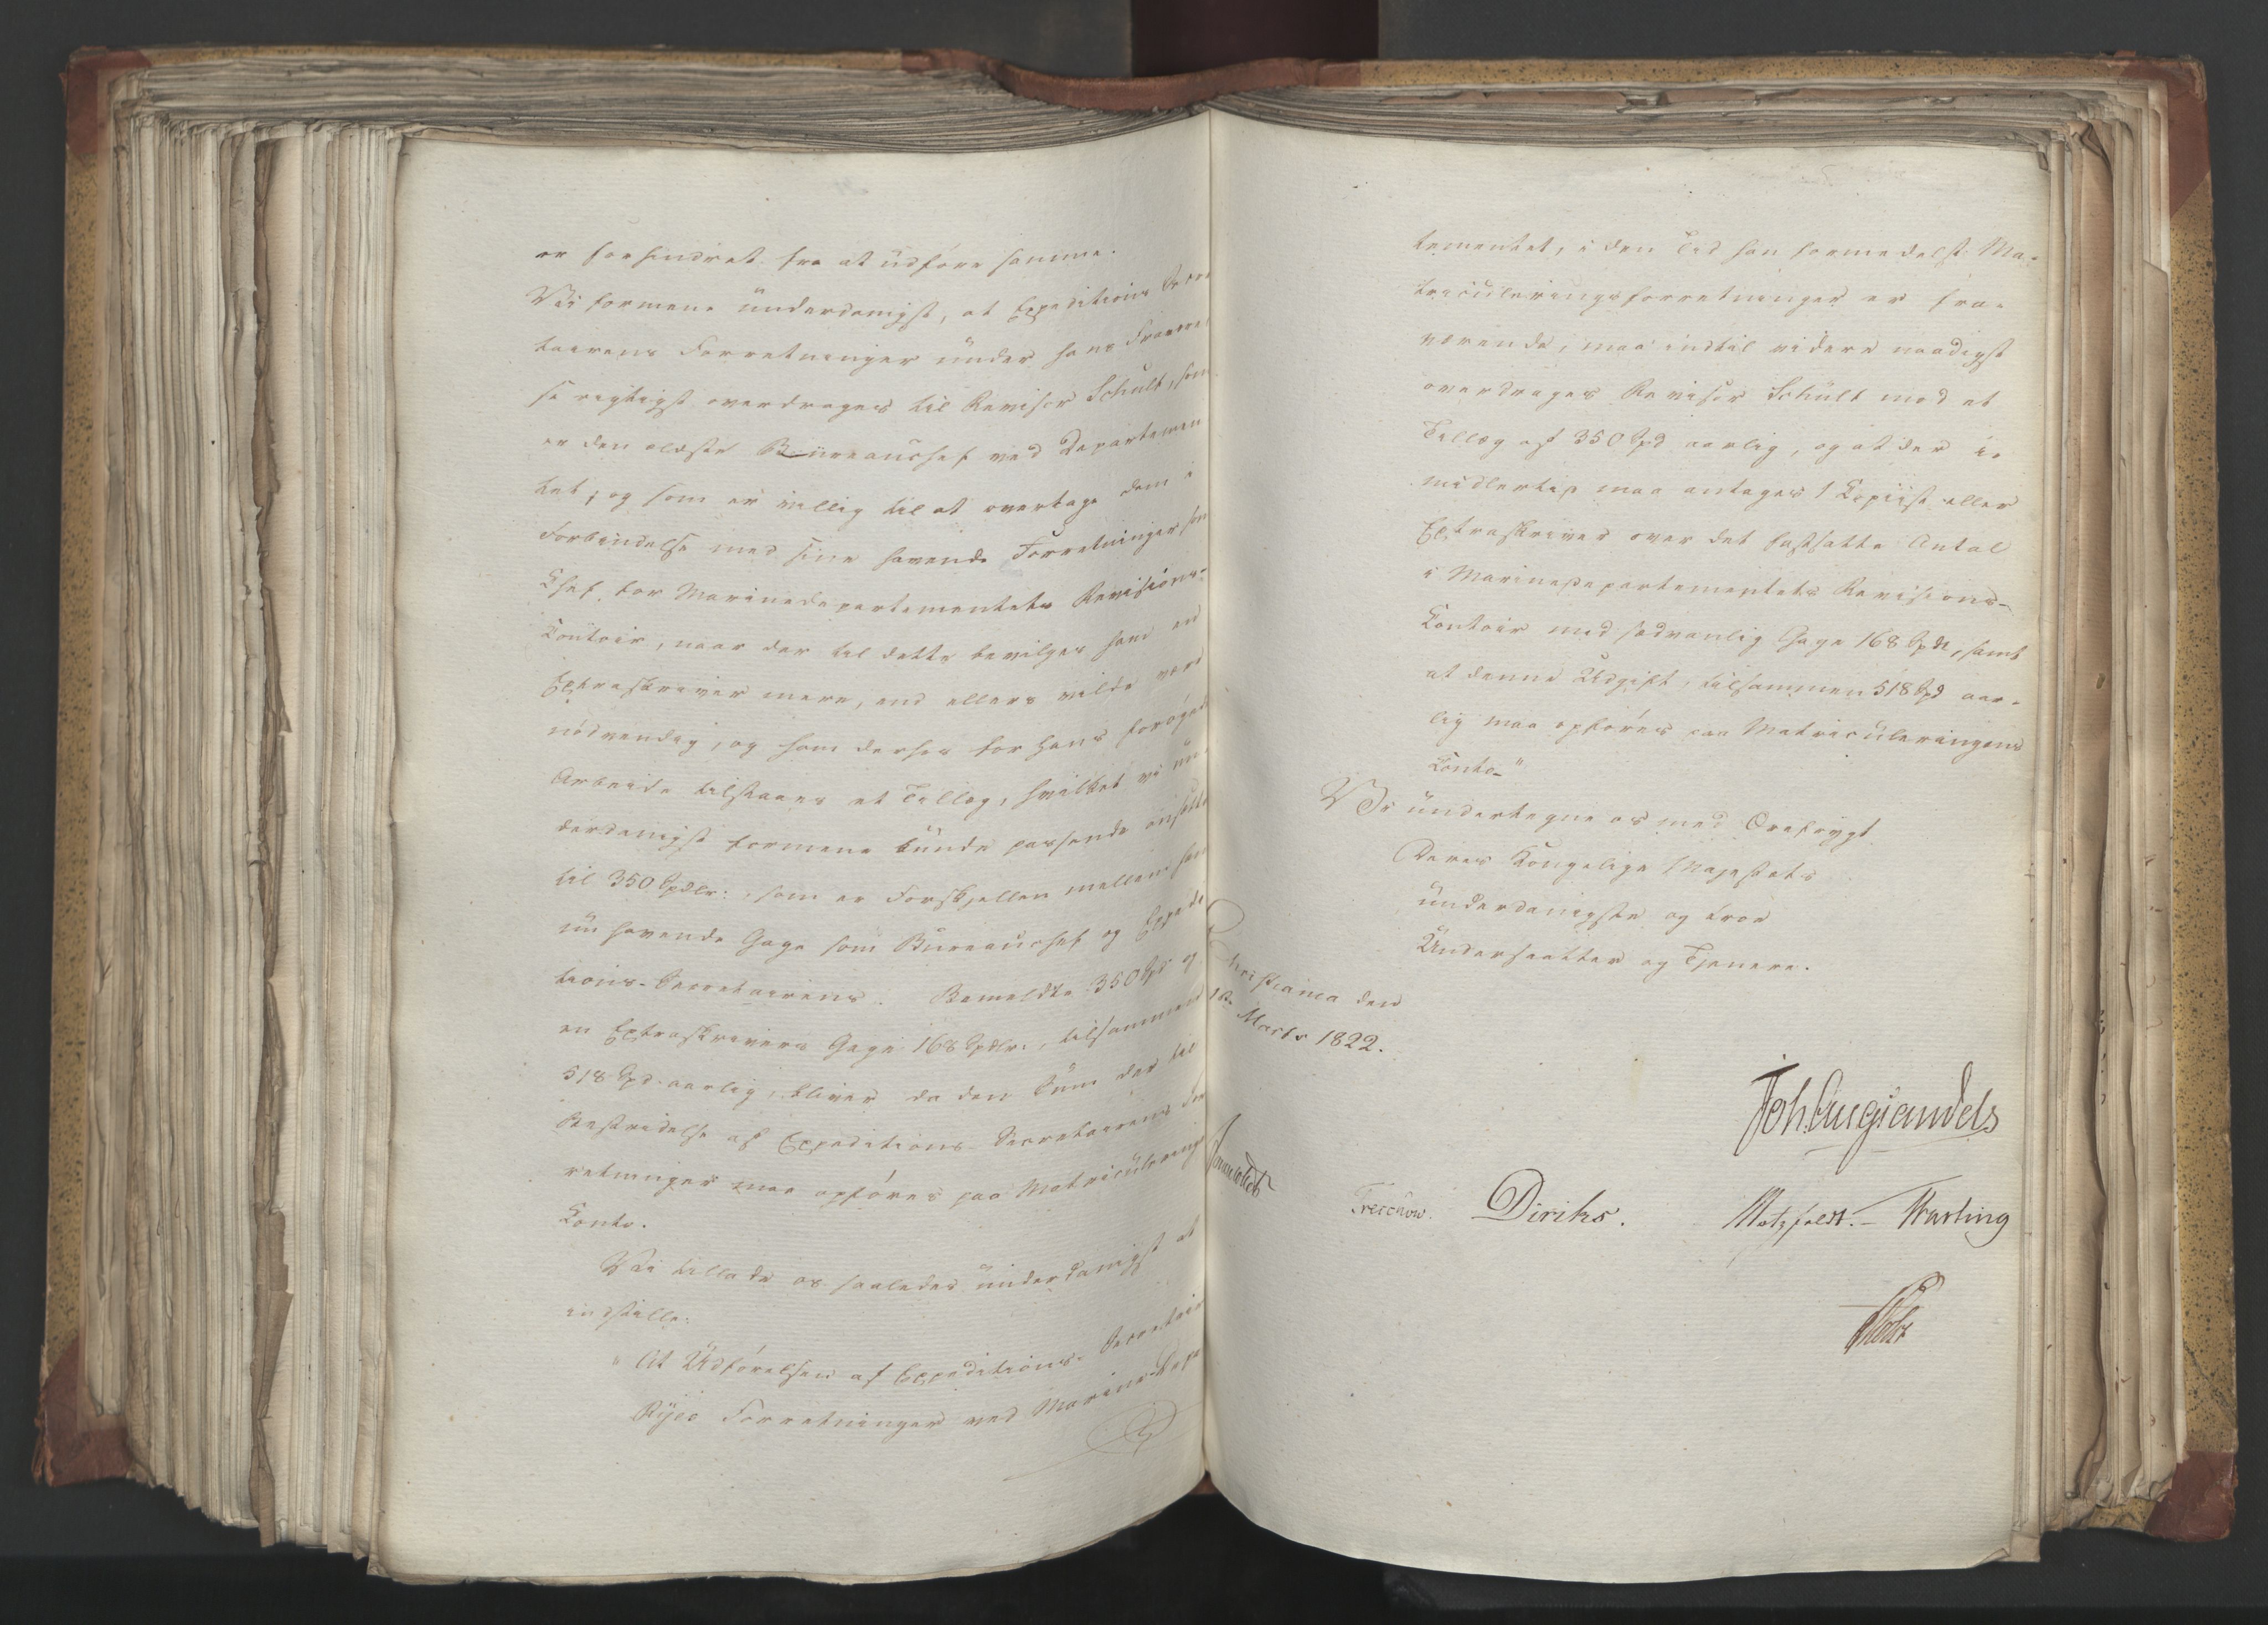 er forhindret fra at udføre samme.
Vi formene underdanigst, at Expeditions Secre
tairens Forretninger under hans Fravæ
rigtigst overdrages til Revisor Schult, som
er den ældste Büreauchef ved Departemen
tet, og som er villig til at overtage dem i
Forbindelse med sine havende Forretninger som
Chef for Marinedepartementets Revisions-
Contoir, naar der til dette bevilges ham en
Extraskriver mere, end ellers vilde være
nödvendig, og ham derhos for hans forøgede
Arbeide tilstaaes et Tillæg, hvilket vi un
derdanigst formene kunde passende ansættes
til 350 Spdlr:, som er Forskjellen mellem hans
nu havende Gage som Bureauchef og Expedi
tions-Secretairens. Bemeldte 350 Spd og
en Extraskrivers Gage 168 Spdlr:, tilsammen
518 Spd. aarlig, bliver da den Sum der til
Bestridelse af Expeditions-Secretairens For
retninger maa opføres paa Matriculerings
Conto.
Vi tillade os saaledes underdanigst at
indstille:
"At Udførelsen af Expeditions-Secretair
Ryes Forretninger ved Marine-Depar
tementet, i den Tid han formedelst Ma-
triculeringsforretninger er fra-
værende, maa indtil videre naadigst
overdrages Revisor Schult med et
Tillæg af 350 Spd aarlig, og at der i-
midlertid maa antages 1 Copiist eller
Extraskriver over det fastsatte Antal
i Marinedepartementets Revisions-
Contoir med sædvanlig Gage 168 Spdr, samt
at denne Udgift, tilsammen 518 Spd aar-
lig maa opføres paa Matriculeringens
Conto."
Vi undertegne os med Ærefrygt
Deres Kongelige Majestæts
underdanigste og troe
Undersaatter og Tjenere.
Christiania den
Marts 1822.
Joh. Aug Sandels
Sommerhielm
Treschow. Diriks. Motzfeldt. Krefting
Holst